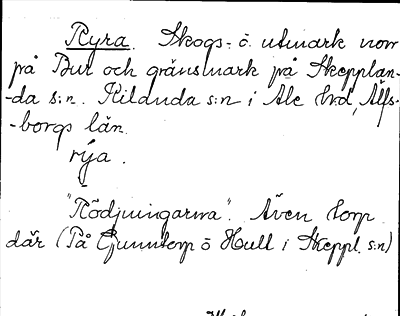 Ryra. Skogs- o. utmark norr
på Bur och gränsmark på Skepplan-
-da s:n. Kilanda s:n i Ale hrd, Älfs-
-borgs län.
rýa.
"Rödjningarna". Även torp
där (På Gunntorp o Hult i Skeppl. s:n)